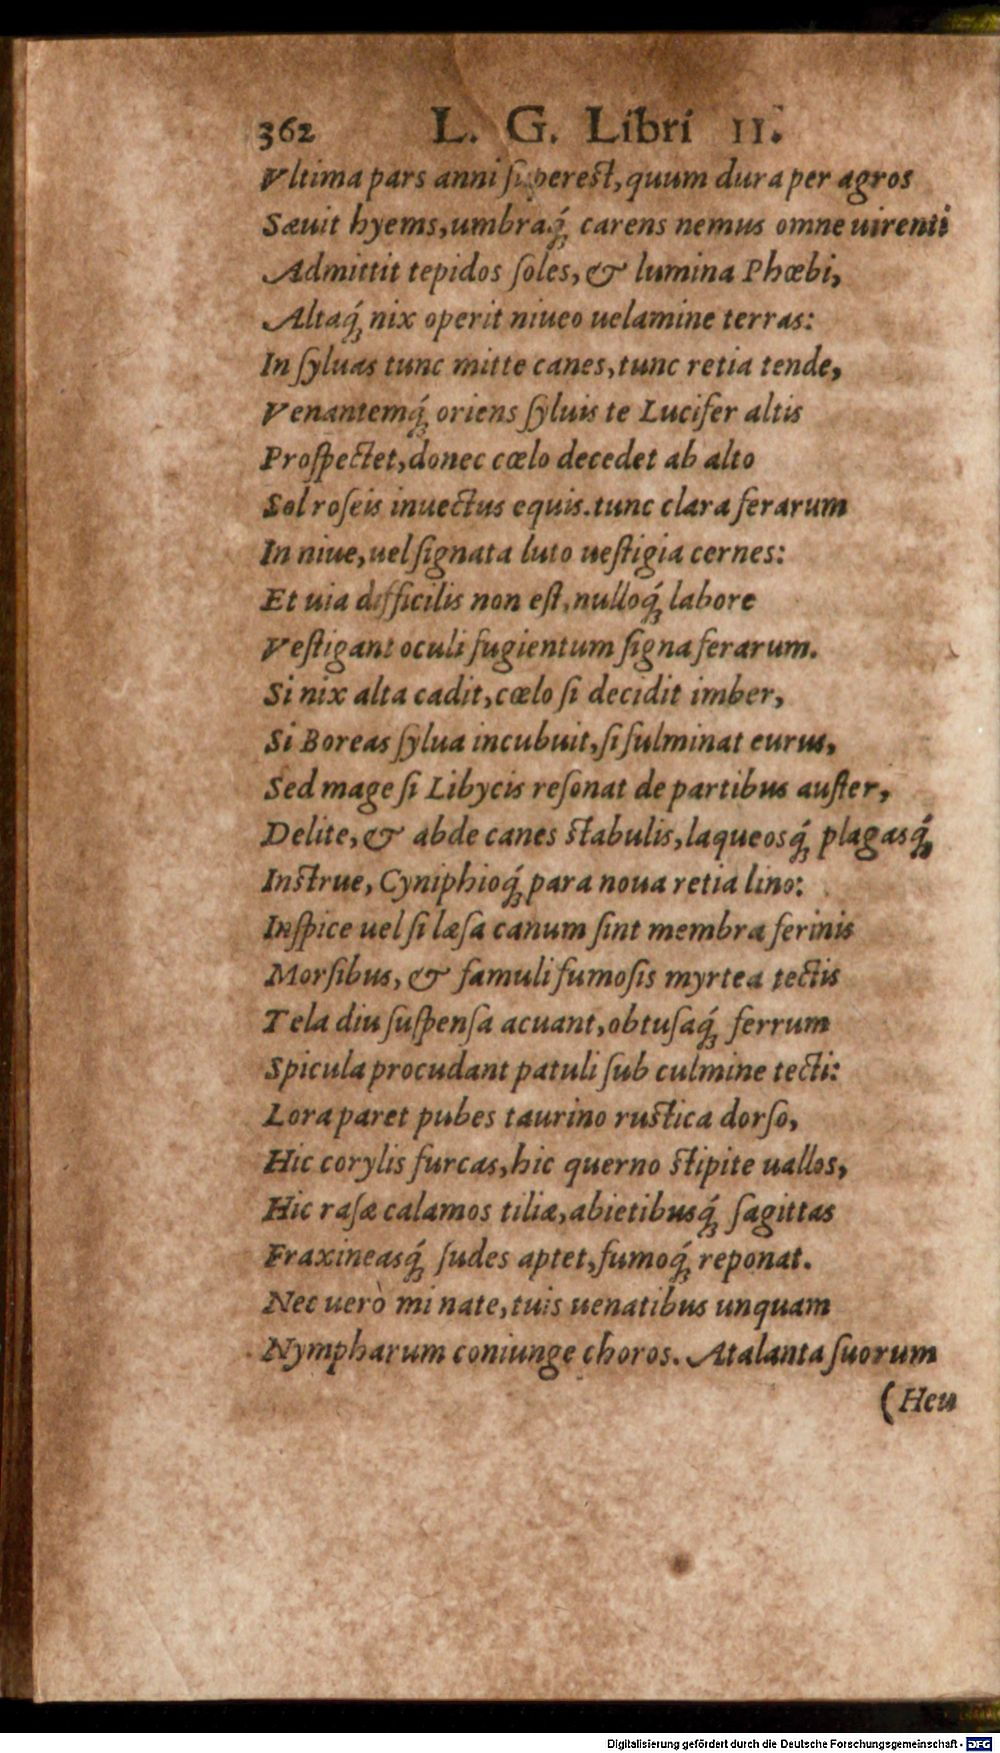 362 L. G. Libri II.
Vltima pars anni ſuperest, quum dura per agros
Sæuit hyems, umbraq́; carens nemus omne uirenti
Admittit tepidos ſoles, & lumina Phœbi,
Altaq́; nix operit niueo uelamine terras:
In ſyluas tunc mitte canes, tunc retia tende,
Venantemq́; oriens ſyluis te Lucifer altis
Proſpectet, donec cœlo decedet ab alto
Sol roſeis inuectus equis. tunc clara ferarum
In niue, uel ſignata luto ueſtigia cernes:
Et uia difficilis non eſt, nulloq́; labore
Veſtigant oculi fugientum ſigna ferarum.
Si nix alta cadit, cœlo ſi decidit imber,
Si Boreas ſylua incubuit, ſi fulminat eurus,
Sed mage ſi Libycis reſonat de partibus auſter,
Delite, & abde canes stabulis, laqueosq́; plagasq́;
Instrue, Cyniphioq́; para noua retia lino:
Inſpice uel ſi læſa canum ſint membra ferinis
Morſibus, & famuli fumoſis myrtea tectis
Tela diu ſuſpenſa acuant, obtuſaq́; ferrum
Spicula procudant patuli ſub culmine tecti:
Lora paret pubes taurino rustica dorſo,
Hic corylis furcas, hic querno stipite uallos,
Hic raſæ calamos tiliæ, abietibusq́; ſagittas
Fraxineasq́; ſudes aptet, fumoq́; reponat.
Nec uerò mi nate, tuis uenatibus unquam
Nympharum coniunge choros. Atalanta ſuorum
(Heu
Digitalisierung gefördert durch die Deutsche Forschungsgemeinschaft - DFG